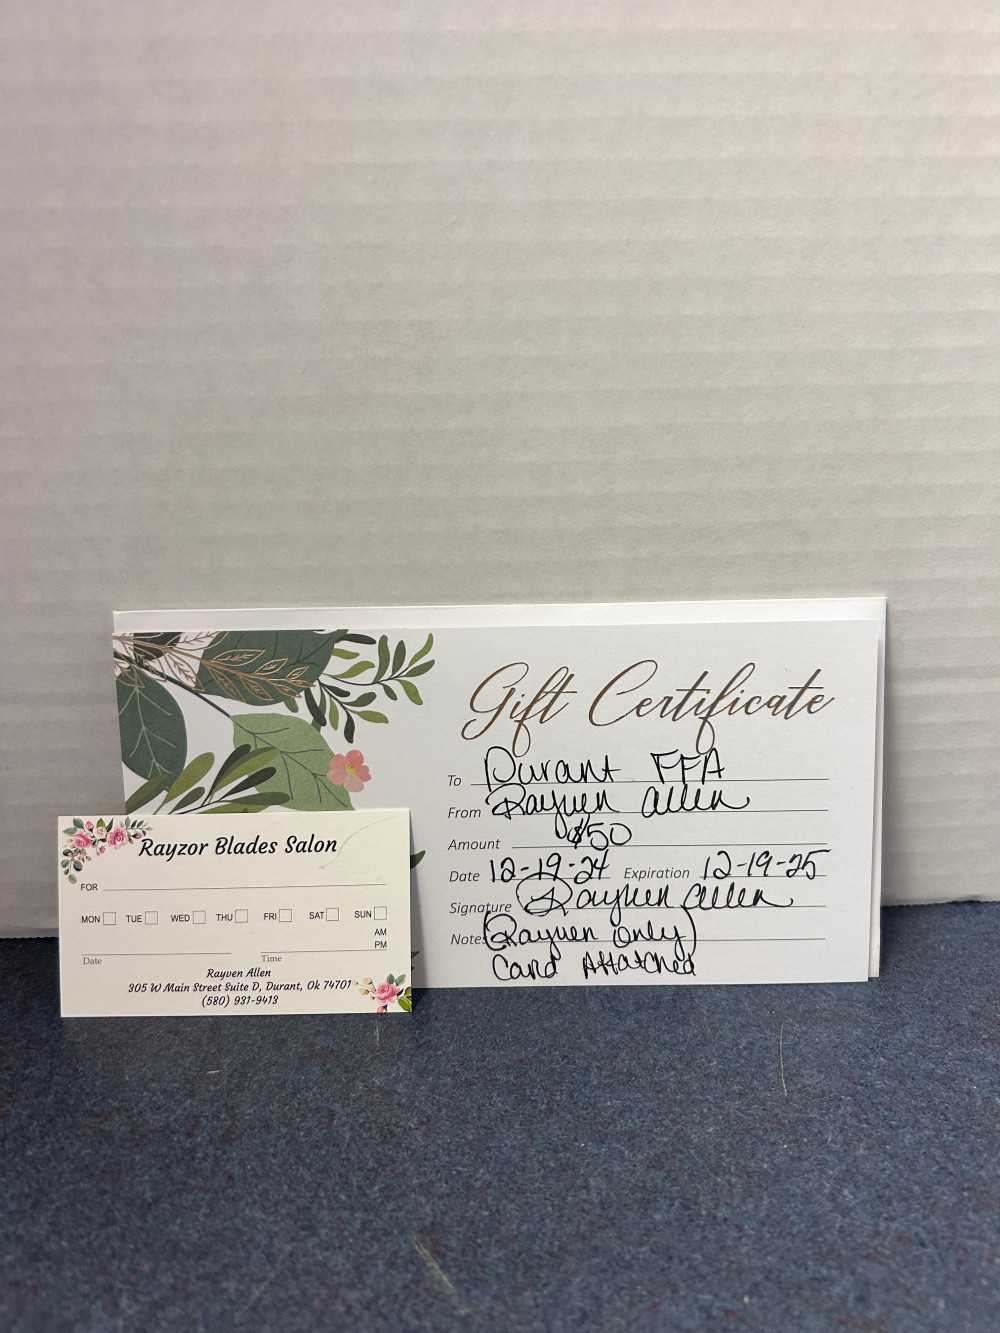 Gift Certificate
To Durant FFA
From Rayven Allen
Amount $50
Date 12-19-24 Expiration 12-19-25
Signature Rayven Allen
Notes (Rayven Only)
Card Attatched
Rayzor Blades Salon
FOR
MON TUE WED THU FRI SAT SUN
AM
PM
Date Time
Rayven Allen
305 W Main Street Suite D, Durant, Ok 74701
(580) 931-9413